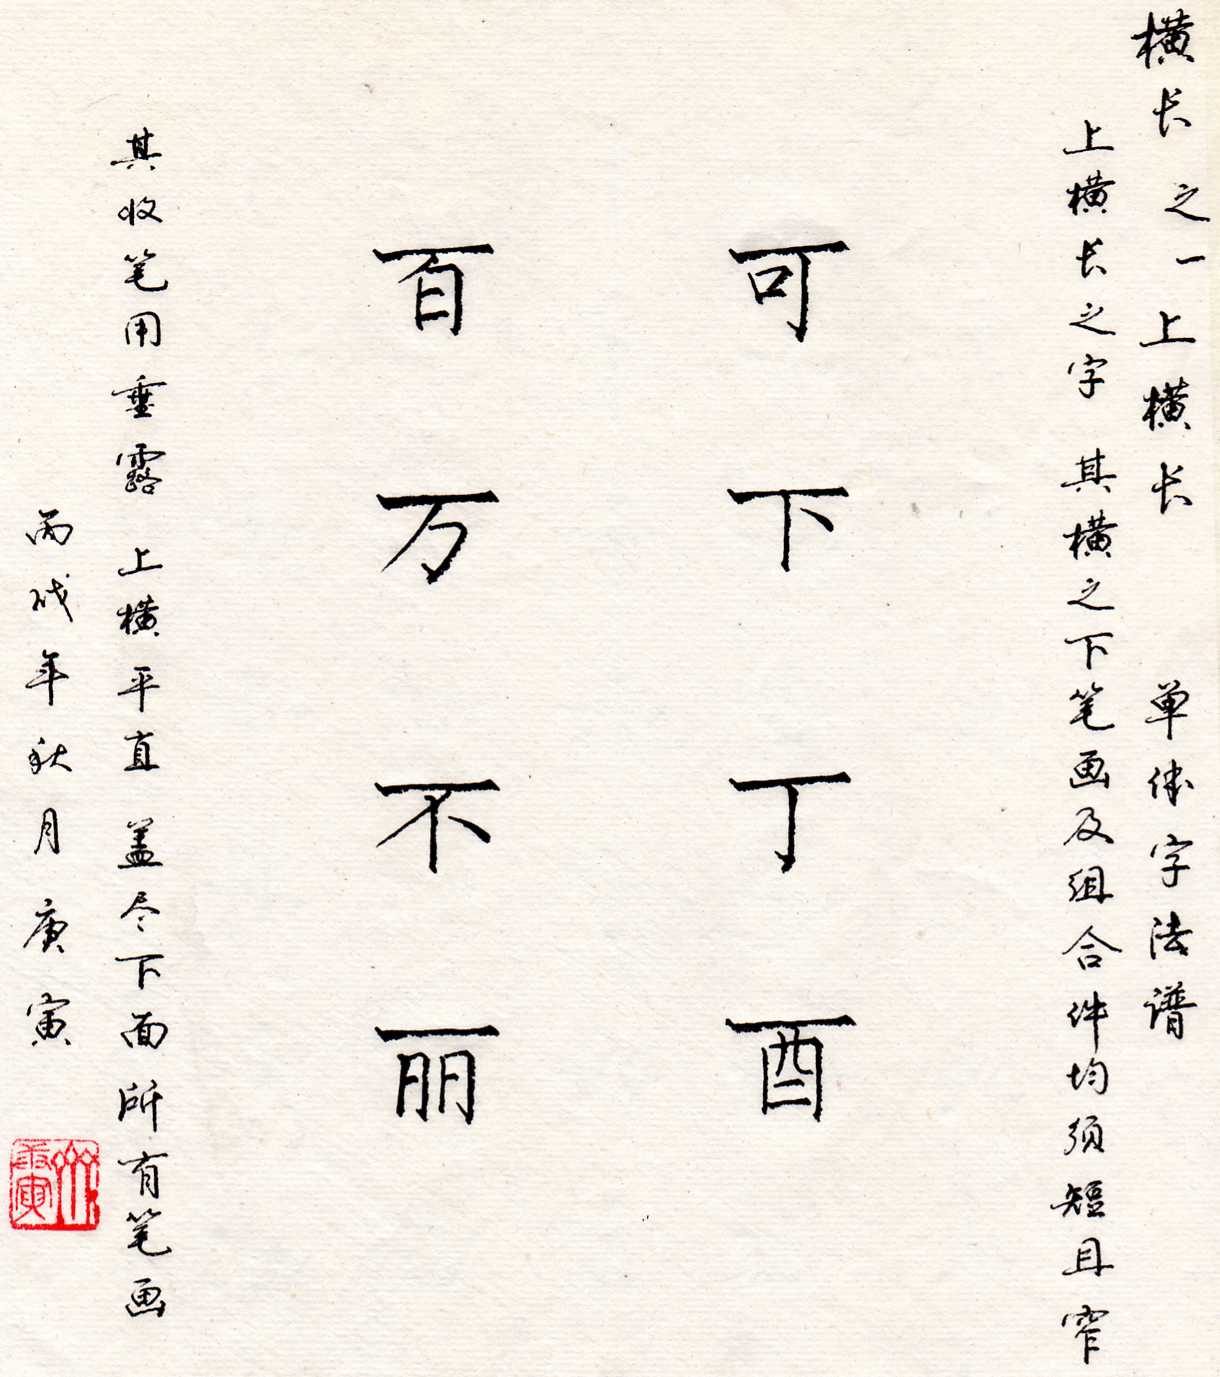 横长之一上横长 单体字法谱
上横长之字 其横之下笔画及组合件均须短且窄
可下丁酉
百万不丽
其收笔用垂露 上横平直 盖尽下面所有笔画
丙戌年秋月庚寅